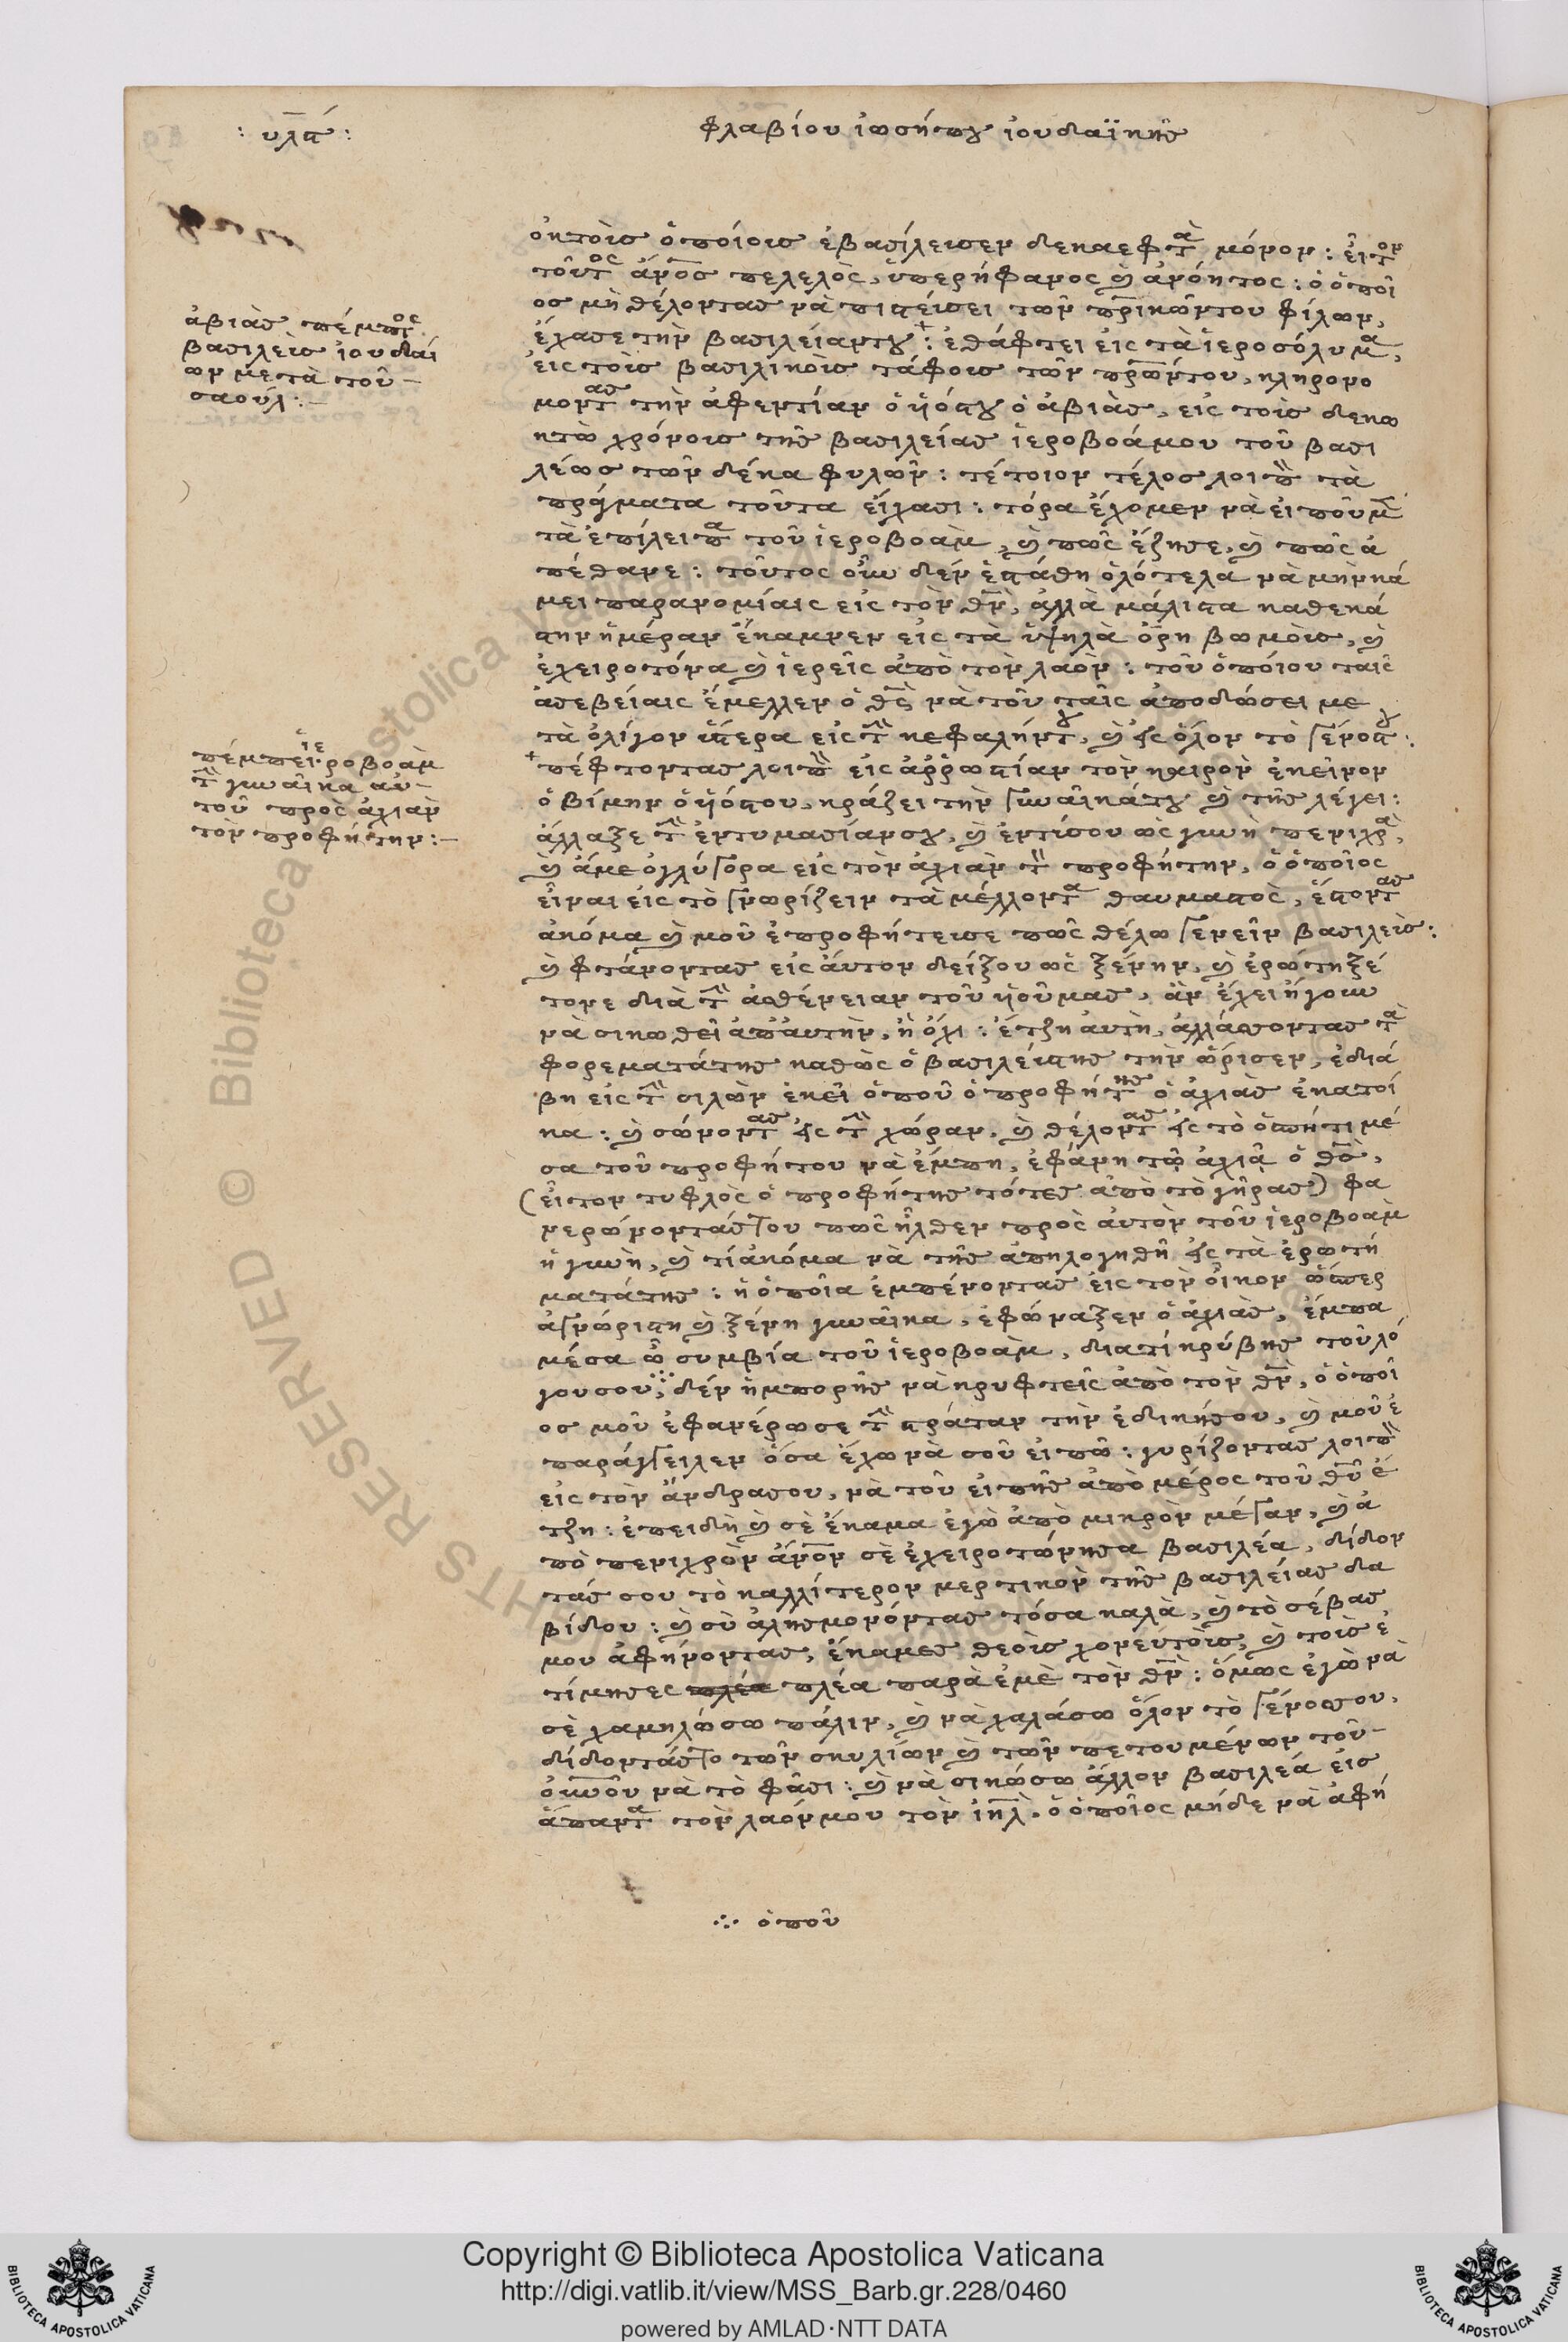 : υλϛ :
φλαβίου ἰωσήπȣ ἰουδαϊκῆς
ὀκτὼις ὁποίοις ἐβασίλευσεν δεκαεφτὰ μόνον : εἶτον
τοῦτος ἄνος πελελὸς, ὑπερήφανος ϗ ἀνόητος : ὁ ὁποῖ
ος μὴ θέλοντας νὰ πιστεύσει τῶν πρικῶντου φίλων,
ἔχασε τὴν βασιλείαντȣ : ἐθάφτει εἰς τὰ ἱεροσόλυμα,
εἰς τοὺς βασιλικοὺς τάφους τῶν πρωντου, κληρονο
μοντας τὴν ἀφεντίαν ὁ ὑιόςτȣ ὁ ἀβιὰς, εἰς τοὺς δεκω
κτὼ χρόνους τῆς βασιλείας ἱεροβοάμου τοῦ βασι
λέως τῶν δέκα φυλῶν : τέτοιον τέλος λοιπὸν τὰ
πράγματα τοῦτα εἴχασι : τόρα ἔχομεν νὰ εἰποῦμεν
τὰ ἐπίλειπα τοῦ ἱεροβοὰμ, ϗ πῶς ἔζησε, ϗ πῶς ἀ
πέθανε : τοῦτος οὖν δὲν ἐστάθη ὁλότελα νὰ μὴν κά
μει παρανομίαις εἰς τὸν θν, ἀλλὰ μάλιστα καθεκά
στην ἡμέραν ἔκαμνεν εἰς τὰ ὑψηλὰ ὄρη βωμοὺς, ϗ
ἐχειροτόνα ϗ ἱερεῖς ἀπὸ τὸν λαὸν : τοῦ ὁποίου ταῖς
ἀσεβείαις ἔμελλεν ὁ θς νὰ τοῦ ταῖς ἀποδώσει με
τὰ ὀλίγον ὕστερα εἰς τὴν κεφαλήντȣ, ϗ εἰς ὅλον τὸ γένοςτȣ :
πέφτοντας λοιπὸν εἰς ἀῤῥωστίαν τὸν καιρὸν ἐκεῖνον
ὁ βίμην ὁ ὑιόςτου, κράζει τὴν γυναῖκάτȣ ϗ τῆς λέγει :
ἄλλαξε τὴν ἐντυμασίανσȣ, ϗ ἐντύσου ὡς γυνὴ πενιχρὰ,
ϗ ἄμε ὀγλύγορα εἰς τὸν ἀχιὰν τὸν προφήτην, ὁ ὁποῖος
εἶναι εἰς τὸ γνωρίζειν τὰ μέλλοντα θαυμαστὸς, ἔστοντας
ἀκόμα ϗ μοῦ ἐπροφήτευσε πῶς θέλω γενεῖν βασιλεὺς :
ϗ φτάνοντας εἰς ἄυτον δείξου ὡς ξένην, ϗ ἐρώτηξέ
τονε διὰ τὴν ἀσθένειαν τοῦ ὑιοῦμας, ἂν ἔχει ἤγουν
νὰ σικωθεῖ ἀπ'ἀυτὴν, ἢ ὄχι : ἔτζη ἀυτὴ, ἀλλάσσοντας τὰ
φορεματάτης καθὼς ὁ βασιλεύςτης τὴν ὥρισεν, ἐδιά
βη εἰς τὴν σιλὼν ἐκεῖ ὁποῦ ὁ προφήτης ὁ ἀχιὰς ἐκατοί
κα : ϗ σώνοντας εἰς τὴν χώραν, ϗ θέλοντας εἰς τὸ ὁσπήτι μέ
σα τοῦ προφήτου νὰ ἔμπη, ἐφάνη τῷ ἀχιᾷ ὁ θς,
(εἶτον τυφλὸς ὁ προφήτης τότες ἀπὸ τὸ γῆρας) φα
νερώνοντάςτου πῶς ἦλθεν πρὸς ἀυτὸν τοῦ ἱεροβοὰμ
ἡ γυνὴ, ϗ τί ἀκόμα νὰ τῆς ἀπηλογηθῆ εἰς τὰ ἐρωτή
ματάτης : ἡ ὁποῖα ἐμπένοντας εἰς τὸν οἶκον ὥσπερ
ἀγνώριστη ϗ ξένη γυναῖκα, ἐφώναξεν ὁ ἀχιὰς, ἔμπα
μέσα ὦ συμβία τοῦ ἱεροβοὰμ, διατί κρύβης τοῦ λό
γουσου, δὲν ἠμπορῆς νὰ κρυφτεῖς ἀπὸ τὸν θν, ὁ ὁποῖ
ος μοῦ ἐφανέρωσε τὴν στράταν τὴν ἐδικήσου, ϗ μοῦ ἐ
παράγγειλεν ὅσα ἔχω νὰ σοῦ εἰπῶ : γυρίζοντας λοιπὸν
εἰς τὸν ἄνδρασου, νὰ τοῦ εἰπῆς ἀπὸ μέρος τοῦ θυ ἔ
τζη : ἐπειδὴ ϗ σὲ ἔκαμα ἐγὼ ἀπὸ μικρὸν μέγαν, ϗ ἀ
πὸ πενιχρὸν ἄνον σὲ ἐχειροτώνησα βασιλέα, δίδον
τάς σου τὸ καλλίτερον μερτικὸν τῆς βασιλείας δα
βίδου : ϗ σὺ ἀλησμονόντας τόσα καλὰ, ϗ τὸ σέβας
μου ἀφήνοντας, ἔκαμες θεοὺς χονευτοὺς, ϗ τοὺς ἐ
τίμησες πλέα παρὰ ἐμὲ τὸν θν : ὅμως ἐγὼ νὰ
σὲ χαμηλώσω πάλιν, ϗ νὰ χαλάσω ὅλον τὸ γένοςσου,
δίδοντάςτο τῶν σκυλίων ϗ τῶν πετουμένων τοῦ
ουνοῦ νὰ τὸ φᾶσι : ϗ νὰ σικώσω ἄλλον βασιλέα εἰς
ἅπαντα τὸν λαόνμου τὸν ἰηλ. ὁ ὁποῖος μήδε νὰ ἀφή
∴ ὁποῦ
ἀβιὰς πέμπτος
βασιλεὺς ἰουδαί
ων μετὰ τοῦ
σαούλ :
πέμπει ἱεροβοὰμ
τὴν γυναῖκα αὐ
τοῦ πρὸς ἀχιὰν
τὸν προφήτην :
Copyright © Biblioteca Apostolica Vaticana
http://digi.vatlib.it/view/MSS_Barb.gr.228/0460
powered by AMLAD·NTT DATA
BIBLIOTECA APOSTOLICA VATICANA
BIBLIOTECA APOSTOLICA VATICANA